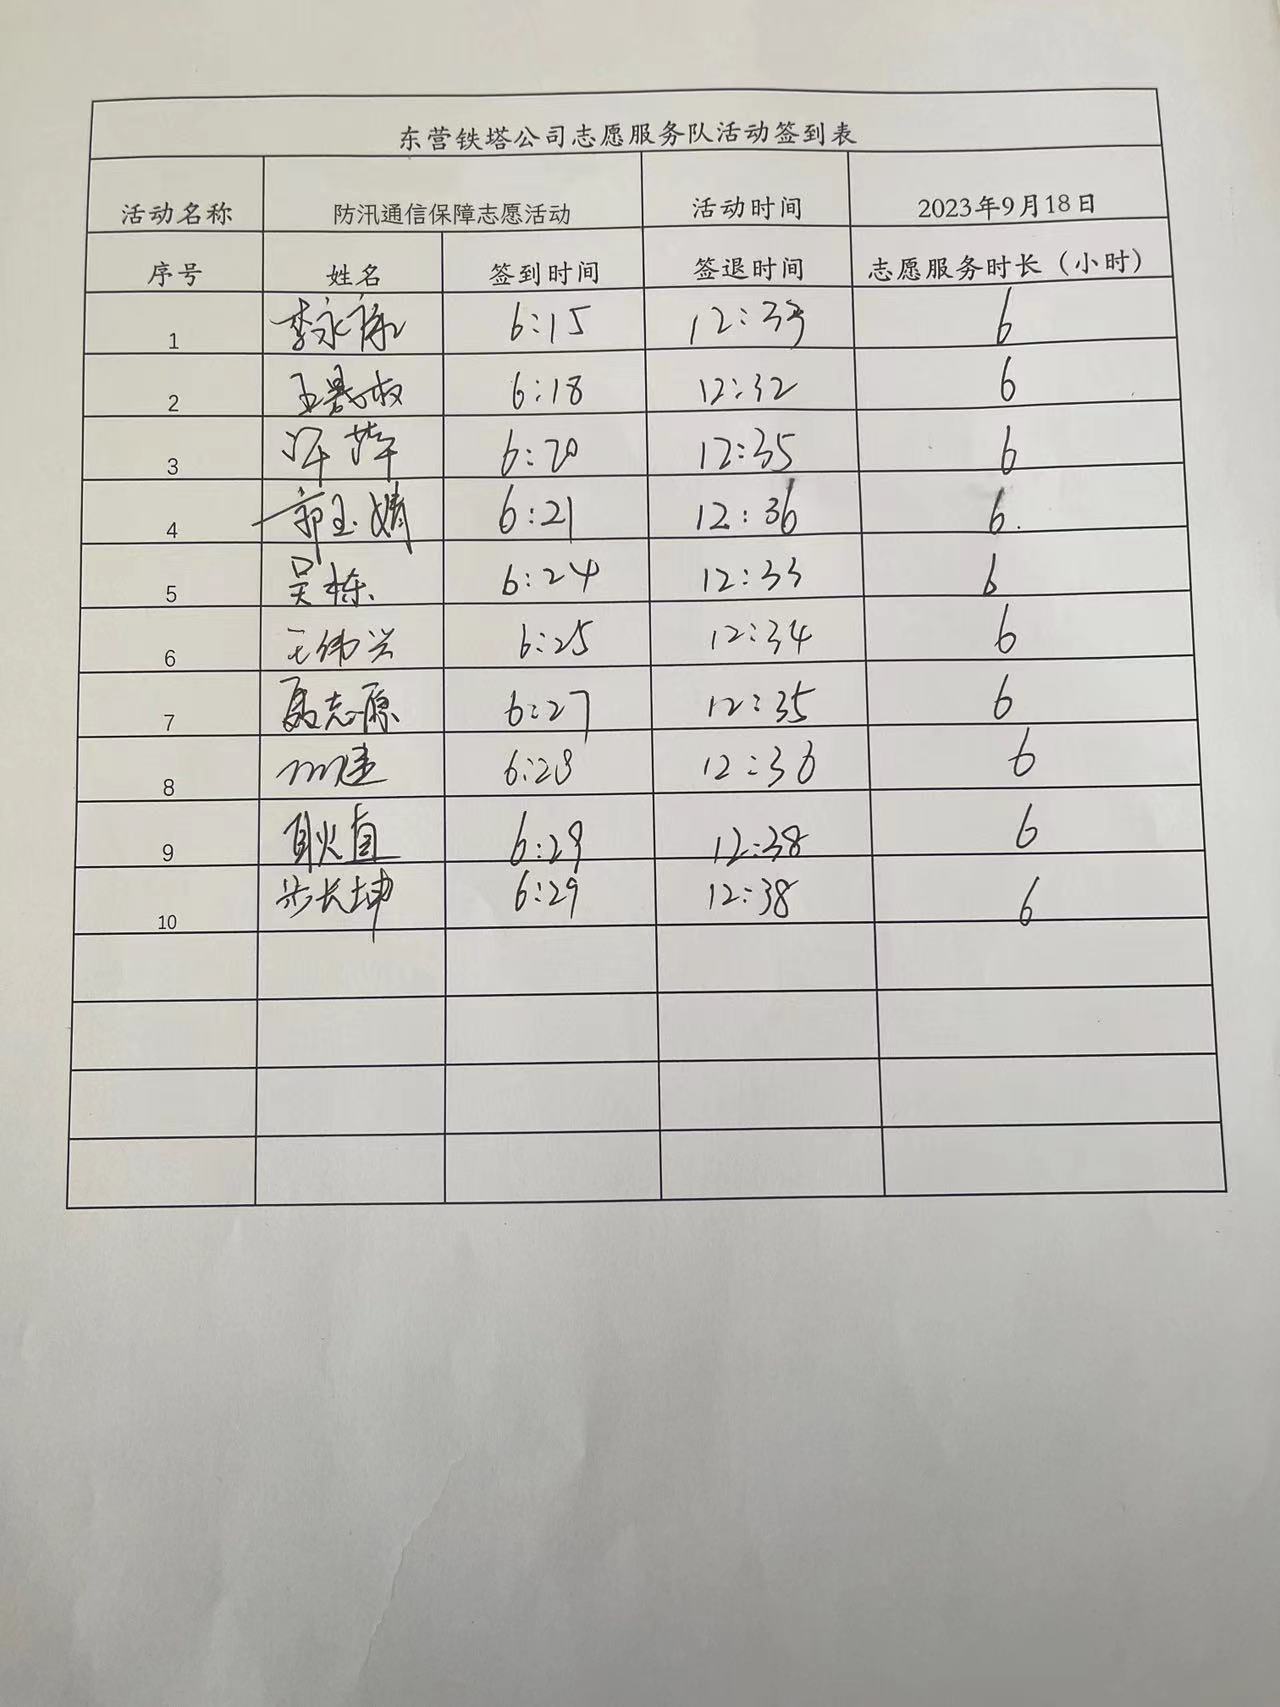 东营铁塔公司志愿服务队活动签到表
活动名称 防汛通信保障志愿活动 活动时间 2023年9月18日
序号 姓名 签到时间 签退时间 志愿服务时长（小时）
1 李永康 6:15 12:35 6
2 6:18 12:32 6
3 许萍 6:20 12:35 6
4 郭玉婧 6:21 12:36 6.
5 吴栋 6:24 12:33 6
6 王伟兴 6:25 12:34 6
7 聂志原 6:27 12:35 6
8 6:28 12:36 6
9 6:29 12:38 6
10 步长坤 6:29 12:38 6